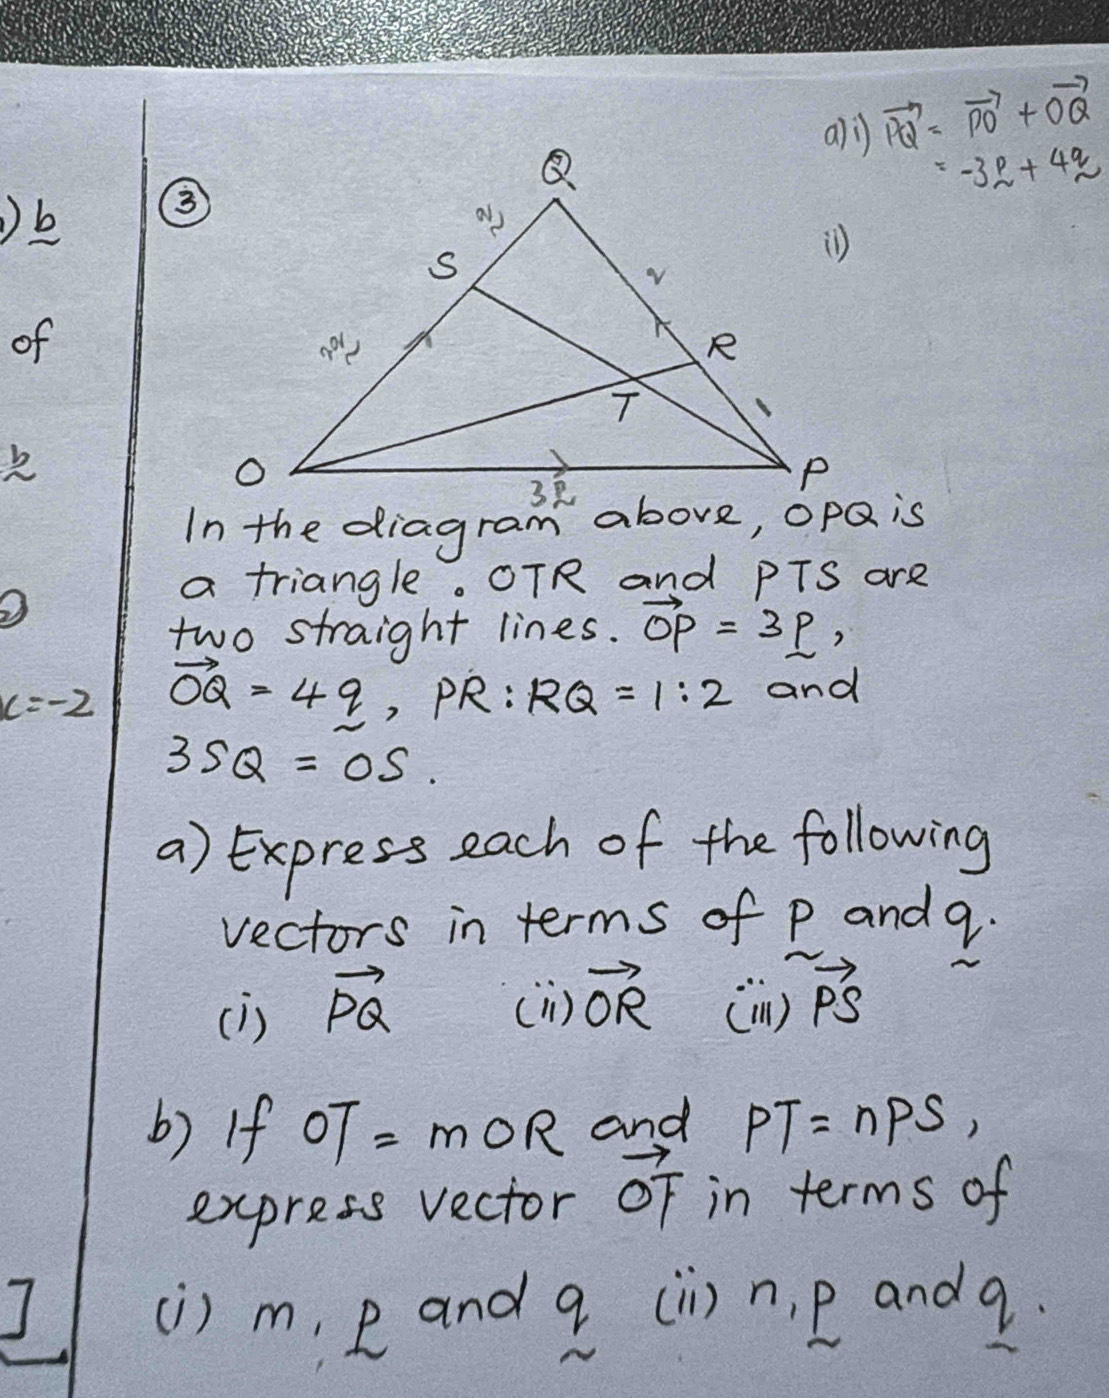 1) b
of
b
2
x=-2
]
a) i) PQ = PO + OQ
= -3p + 4q
ii)
3
Q
q
S
2
3q
R
1
T
O
P
3p
In the diagram above, OPQ is
a triangle. OTR and PTS are
two straight lines. OP = 3p,
OQ = 4q, PR : RQ = 1 : 2 and
3SQ = OS.
a) Express each of the following
vectors in terms of p and q.
(i) PQ (ii) OR (iii) PS
b) If OT = mOR and PT = nPS,
express vector OT in terms of
(i) m, p and q (ii) n, p and q.